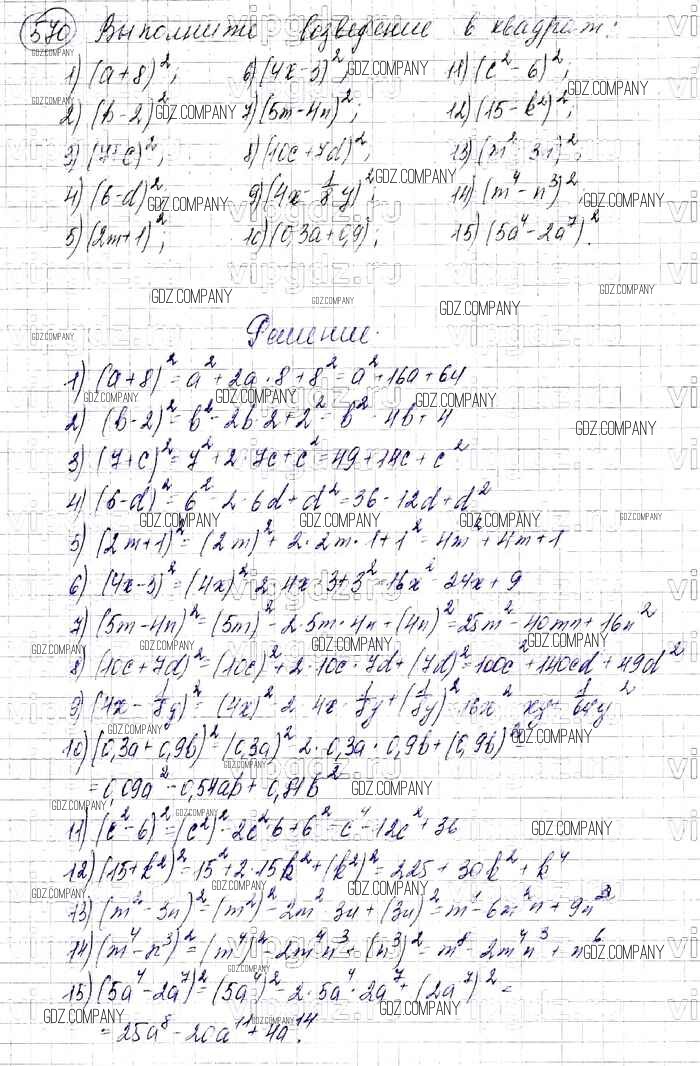 570 Выполните возведение в квадрат:
1) (a+8)²; 6) (4x-3)²; 11) (c²-6)²;
2) (b-2)²; 7) (5m-4n)²; 12) (15-k²)²;
3) (7+c)²; 8) (10c+7d)²; 13) (m²-3n)²;
4) (6-d)²; 9) (4x-1/8y)²; 14) (m⁴-n³)²;
5) (2m+1)²; 10) (0,3a+0,9)²; 15) (5a⁴-2a⁷)².
Решение.
1) (a+8)²=a²+2a·8+8²=a²+16a+64
2) (b-2)²=b²-2b·2+2²=b²-4b+4
3) (7+c)²=7²+2·7c+c²=49+14c+c²
4) (6-d)²=6²-2·6d+d²=36-12d+d²
5) (2m+1)²=(2m)²+2·2m·1+1²=4m²+4m+1
6) (4x-3)²=(4x)²-2·4x·3+3²=16x²-24x+9
7) (5m-4n)²=(5m)²-2·5m·4n+(4n)²=25m²-40mn+16n²
8) (10c+7d)²=(10c)²+2·10c·7d+(7d)²=100c²+140cd+49d²
9) (4x-1/8y)²=(4x)²-2·4x·1/8y+(1/8y)²=16x²-xy+1/64y²
10) (0,3a+0,9b)²=(0,3a)²-2·0,3a·0,9b+(0,9b)²=
=0,09a²-0,54ab+0,81b²
11) (c²-6)²=(c²)²-2c²·6+6²=c⁴-12c²+36
12) (15+k²)²=15²+2·15k²+(k²)²=225+30k²+k⁴
13) (m²-3n)²=(m²)²-2m²·3n+(3n)²=m⁴-6m²n+9n²
14) (m⁴-n³)²=(m⁴)²-2m⁴n³+(n³)²=m⁸-2m⁴n³+n⁶
15) (5a⁴-2a⁷)²=(5a⁴)²-2·5a⁴·2a⁷+(2a⁷)²=
=25a⁸-20a¹¹+4a¹⁴.